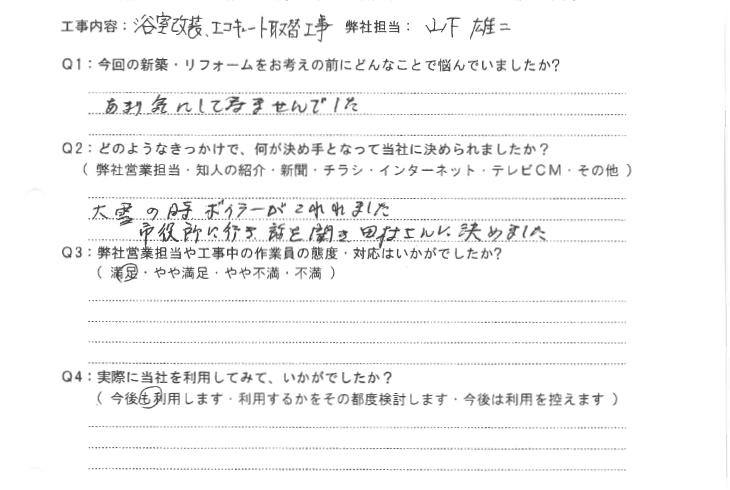 工事内容：浴室改装、エコキュート取替工事 弊社担当：山下 雄二
Q1：今回の新築・リフォームをお考えの前にどんなことで悩んでいましたか？
あまり気にして居ませんでした
Q2：どのようなきっかけで、何が決め手となって当社に決められましたか？
（ 弊社営業担当・知人の紹介・新聞・チラシ・インターネット・テレビＣＭ・その他 ）
大雪の時ボイラーがこわれました
市役所に行き話を聞き田村さんに決めました
Q3：弊社営業担当や工事中の作業員の態度・対応はいかがでしたか？
（ 満足・やや満足・やや不満・不満 ）
Q4：実際に当社を利用してみて、いかがでしたか？
（ 今後も利用します・利用するかをその都度検討します・今後は利用を控えます ）